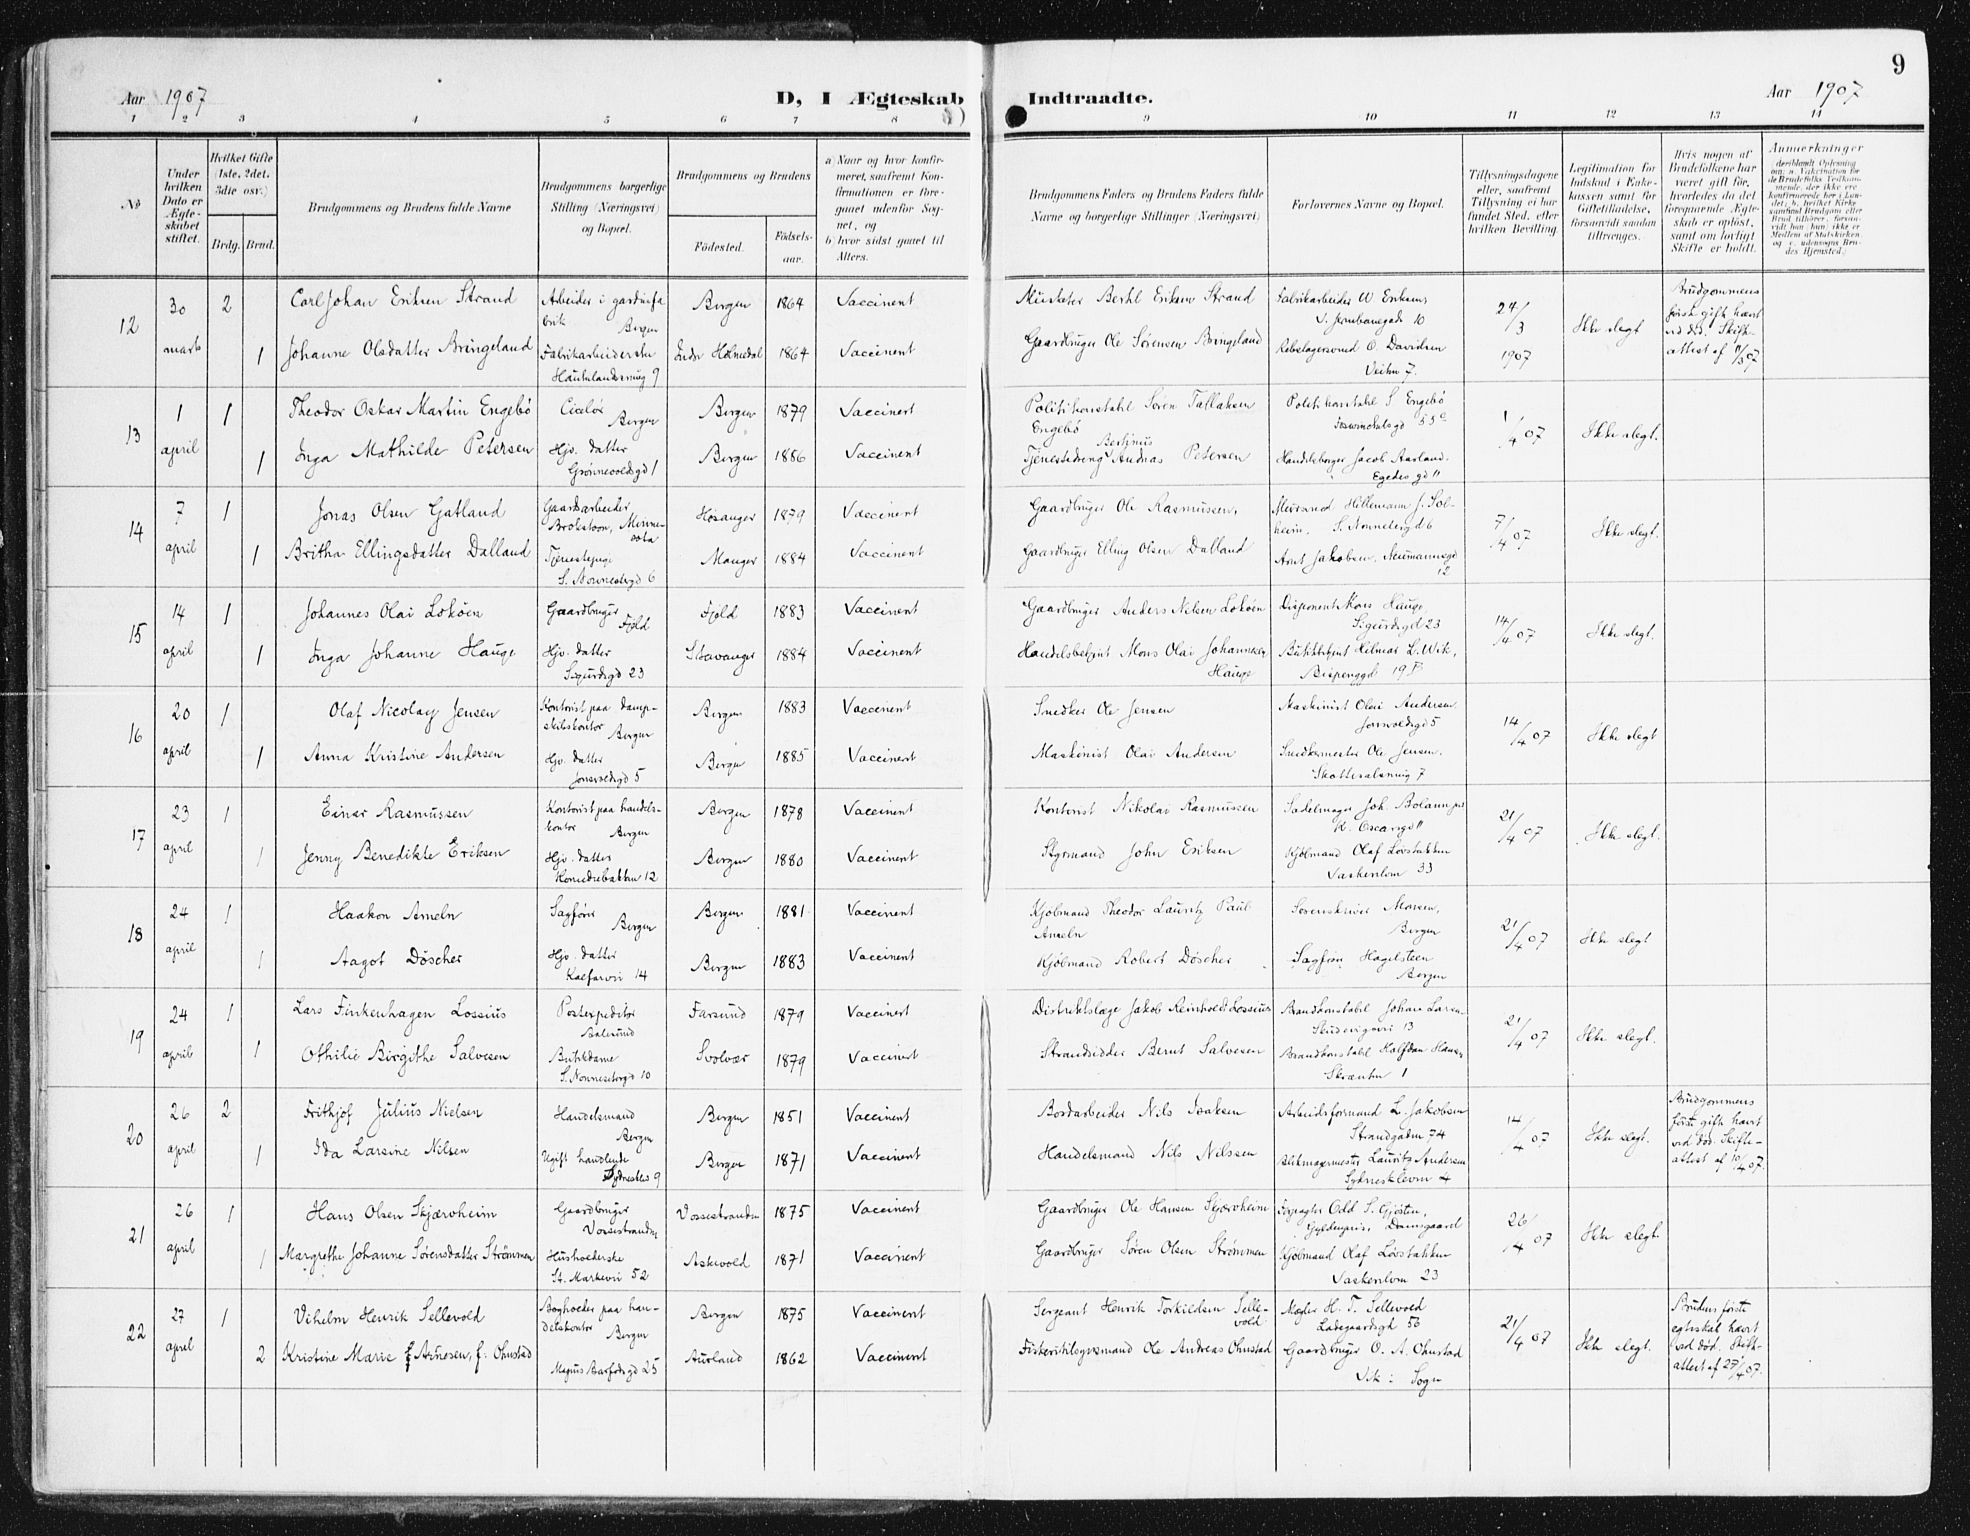 9
Aar 1907
D, I Ægteskab Indtraadte.
Aar 1907
1 2 3 4 5 6 7 8 9 10 11 12 13 14
No
Under hvilken Dato er Ægteskabet stiftet.
Hvilket Gifte (1ste, 2det, 3die osv.)
Brdg. Brud.
Brudgommens og Brudens fulde Navne
Brudgommens borgerlige Stilling (Næringsvei) og Bopæl.
Brudgommens og Brudens
Fødested. Fødselsaar.
a) Naar og hvor konfirmeret, saafremt Konfirmationen er foregaaet udenfor Sognet, og
b) hvor sidst gaaet til Alters.
Brudgommens Faders og Brudens Faders fulde Navne og borgerlige Stillinger (Næringsvei)
Forlovernes Navne og Bopæl.
Tillysningsdagene eller, saafremt Tillysning ei har fundet Sted, efter hvilken Bevilling.
Legitimation for Indskud i Enkekassen samt for Giftetilladelse, forsaavidt saadan tiltrænges.
Hvis nogen af Brudefolkene har været gift før, hvorledes da det foregaaende Ægteskab er opløst, samt om lovligt Skifte er holdt.
Anmerkninger
12 30 marts 2 Carl Johan Eriksen Strand Arbeider i gardinfabrik Bergen Bergen 1864 Vaccinert Eriksen Strand Fabrikarbeider W. Eriksen, 10 24/3 1907 Ikke slegt Brudgommens første gift hævt ved død. Skifteattest af 11/3 07
1 Johanne Olsdatter Bringeland Fabrikarbeiderske 9 Indr Holmedal 1864 Vaccinert Gaardbruger Ole Sørensen Bringeland O. Davidsen Veiten 7.
13 1 april 1 Theodor Oskar Martin Engebø Ciselør Bergen Bergen 1879 Vaccinert Politikonstabl Søren Tallaksen Engebø Politikonstabl S Engebø 55c 1/4 07 Ikke slegt.
1 Inga Mathilde Petersen Hjv. datter Grønnevoldsgd 1 Bergen 1886 Vaccinert Bertinius Andreas Petersen Handelsborger Jacob Aarland. Egedesgd 11
14 7 april 1 Jonas Olsen Gatland Gaardsarbeider Minnesota Hosanger 1879 Vaccinert Gaardbruger Ole Rasmussen. Hellemann J. Solheim. S. Nonnetergd 6 7/4 07 Ikke slegt.
1 Britha Ellingsdatter Dalland Tjenestepige S. Nonnestergd 6 Manger 1884 Vaccinert Gaardbruger Elling Olsen Dalland Arnt Jakobsen, Neumannsgd 12
15 14 april 1 Johannes Olai Lokøen Gaardbruger Fjeld Fjeld 1883 Vaccinert Gaardbruger Anders Nilsen Lokøen Disponent Mons Hauge, Sigurdsgd 23 14/4 07 Ikke slegt.
1 Inga Johanne Hauge Hjv. datter Sigurdsgd 23 Stavanger 1884 Vaccinert Handelsbetjent Mons Olai Johannesen Hauge Butikbetjent Hilmar L. Wik, Bispenggd 19 B
16 20 april 1 Olaf Nicolay Jensen Kontorist paa dampskibskontor Bergen Bergen 1883 Vaccinert Snedker Ole Jensen Maskinist Olai Andersen Jonsvoldsgd 5 14/4 07 Ikke slegt
1 Anna Kristine Andersen Hjv. datter Jonsvoldsgd 5 Bergen 1885 Vaccinert Maskinist Olai Andersen Snedkermester Ole Jensen. 7
17 23 april 1 Einar Rasmussen Kontorist paa handelskontor Bergen Bergen 1878 Vaccinert Kontorist Nikolai Rasmussen Sadelmager Joh. K. Oscarsgd 11 21/4 07 Ikke slegt.
1 Jenny Benedikte Eriksen Hjv. datter 12 Bergen 1880 Vaccinert Styrmand John Eriksen Kjøbmand Olaf Løvstakken 33
18 24 april 1 Haakon Ameln Sagfører Bergen Bergen 1881 Vaccinert Kjøbmand Theodor Lauritz Paul Ameln Sorenskriver Bergen 21/4 07 Ikke slegt
1 Aagot Döscher Hjv. datter Kalfarvei 14 Bergen 1883 Vaccinert Kjøbmand Robert Döscher Sagfører Hagelsteen Bergen
19 24 april 1 Lars Finkenhagen Lossius Postexpeditør Aalesund Farsund 1879 Vaccinert Distriktslæge Jakob Reinholdt Lossius Brandkonstabel Johan Larsen 13 21/4 07 Ikke slegt.
1 Othilie Birgithe Salvesen Butikdame S. Nonnestergd 10 Svolvær 1879 Vaccinert Strandsidder Bernt Salvesen Brandkonstabl Halfdan Hansen 1
20 26 april 2 Frithjof Julius Nielsen Handelsmand Bergen Bergen 1851 Vaccinert Bordarbeider Nils Isaksen Arbeidsformand L. Jakobsen Strandgaden 74 14/4 07 Ikke slegt. Brudgommens første gift hævt ved død. Skifteattest af 10/4 07.
1 Ida Larsine Nilsen Ugift handlende 9 Bergen 1871 Vaccinert Handelsmand Nils Nilssen Blikmagermester Laurits Andersen Sydneskleven 4
21 26 april 1 Hans Olsen Skjærvheim Gaardbruger Vossestranden Vossestranden 1875 Vaccinert Gaardbruger Ole Hansen Skjærvheim Forpagter Odd S. Gjøsten, Gyldenpris, Damsgaard 26/4 07 Ikke slegt.
1 Margrethe Johanne Sørensdatter Strømmen Husholderske St. Markevei 52 Askvold 1871 Vaccinert Gaardbruger Søren Olsen Strømmen Kjøbmand Olaf Løvstakken 23
22 27 april 1 Vilhelm Henrik Sellevold Bogholder paa handelskontor Bergen Bergen 1875 Vaccinert Sergeant Henrik Torkildsen Sellevold Mægler H. T. Sellevold Ladegaardsgd 56 21/4 07 Ikke slegt. Brudens første egteskab hævt ved død. Skifteattest af 27/4 07.
2 Kristine Marie Arnesen, f. Ohnstad Magnus Barfodsgd 25 Aurland 1862 Vaccinert Ole Andreas Ohnstad Gaardbruger O. A. Ohnstad Vik i Sogn